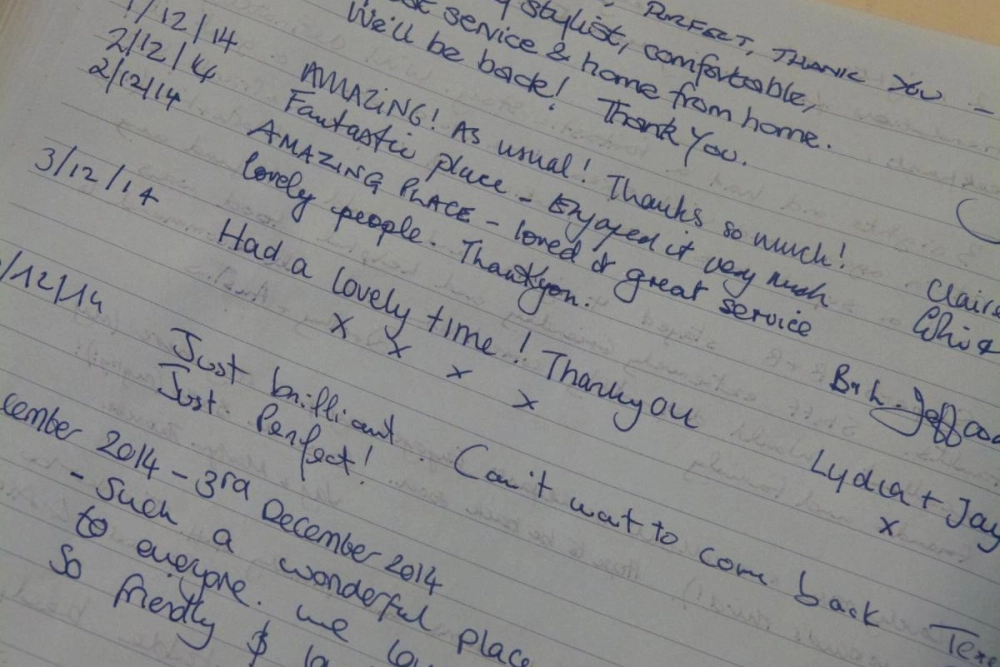 PERFECT, THANK YOU -
stylist, comfortable,
service & home from home.
1/12/14 We'll be back! Thank You.
2/12/14 AMAZING! As usual! Thanks so much!
2/12/14 Fantastic place - Enjoyed it very much Claire
AMAZING PLACE - loved it great service
lovely people. Thankyou.
3/12/14 Had a lovely time! Thankyou
x x x x Lydia + Jay
x
/12/14 Just brilliant Can't wait to come back
Just Perfect!
cember 2014 - 3rd December 2014
- Such a wonderful place
to everyone. we
So friendly &